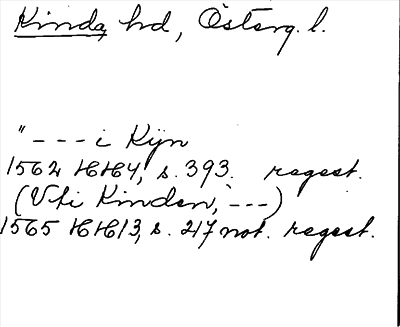 Kinda, hd, Österg. l.
" - - - i Kijn
1562 HH4, s. 393. regest.
(Vti Kinden, - - -)
1565 HH13, s. 217 not. regest.